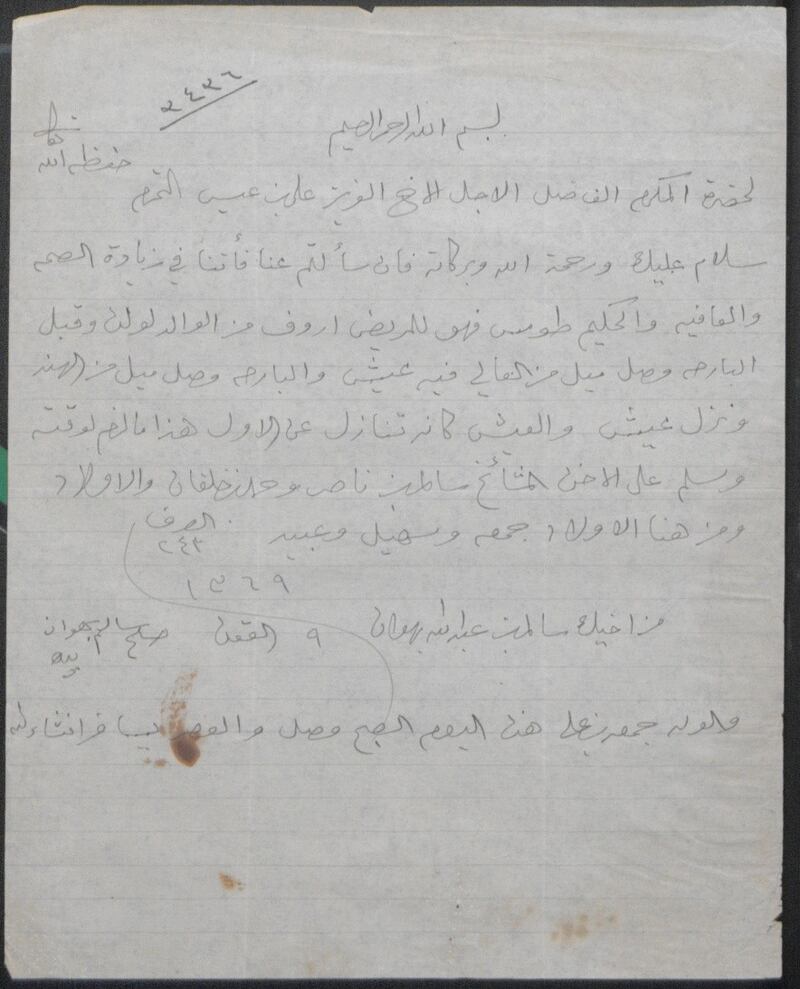 ٢٤٣٦
بسم الله الرحمن الرحيم
حفظه الله
لحضرة المكرم الفاضل الاجل الاخ العزيز علي بن عيسى المحترم
سلام عليك ورحمة الله وبركاته فان سألتم عنا فأننا في زيادة الصحه
والعافيه والحكيم طومس فهو للمريض اروف من الوالد لولده وقبل
البارحه وصل ميل من الفالي فيه عيش والبارحه وصل ميل من الهند
ونزل عيش والعيش كانه تنازل عن الاول هذا مالزم لوقته
وسلم على الاخوان المشائخ سالم بن ناصر وحمد بن خلفان والاولاد
ومن هنا الاولاد جمعه وسهيل وعبيد الصرف
٢٤٣
١٣٦٩
من اخيك سالم بن عبدالله بهوان ٩ القعده صح سالم بهوان
بيده
والولد جمعه بن علي هذا اليوم الصبح وصل والعصر